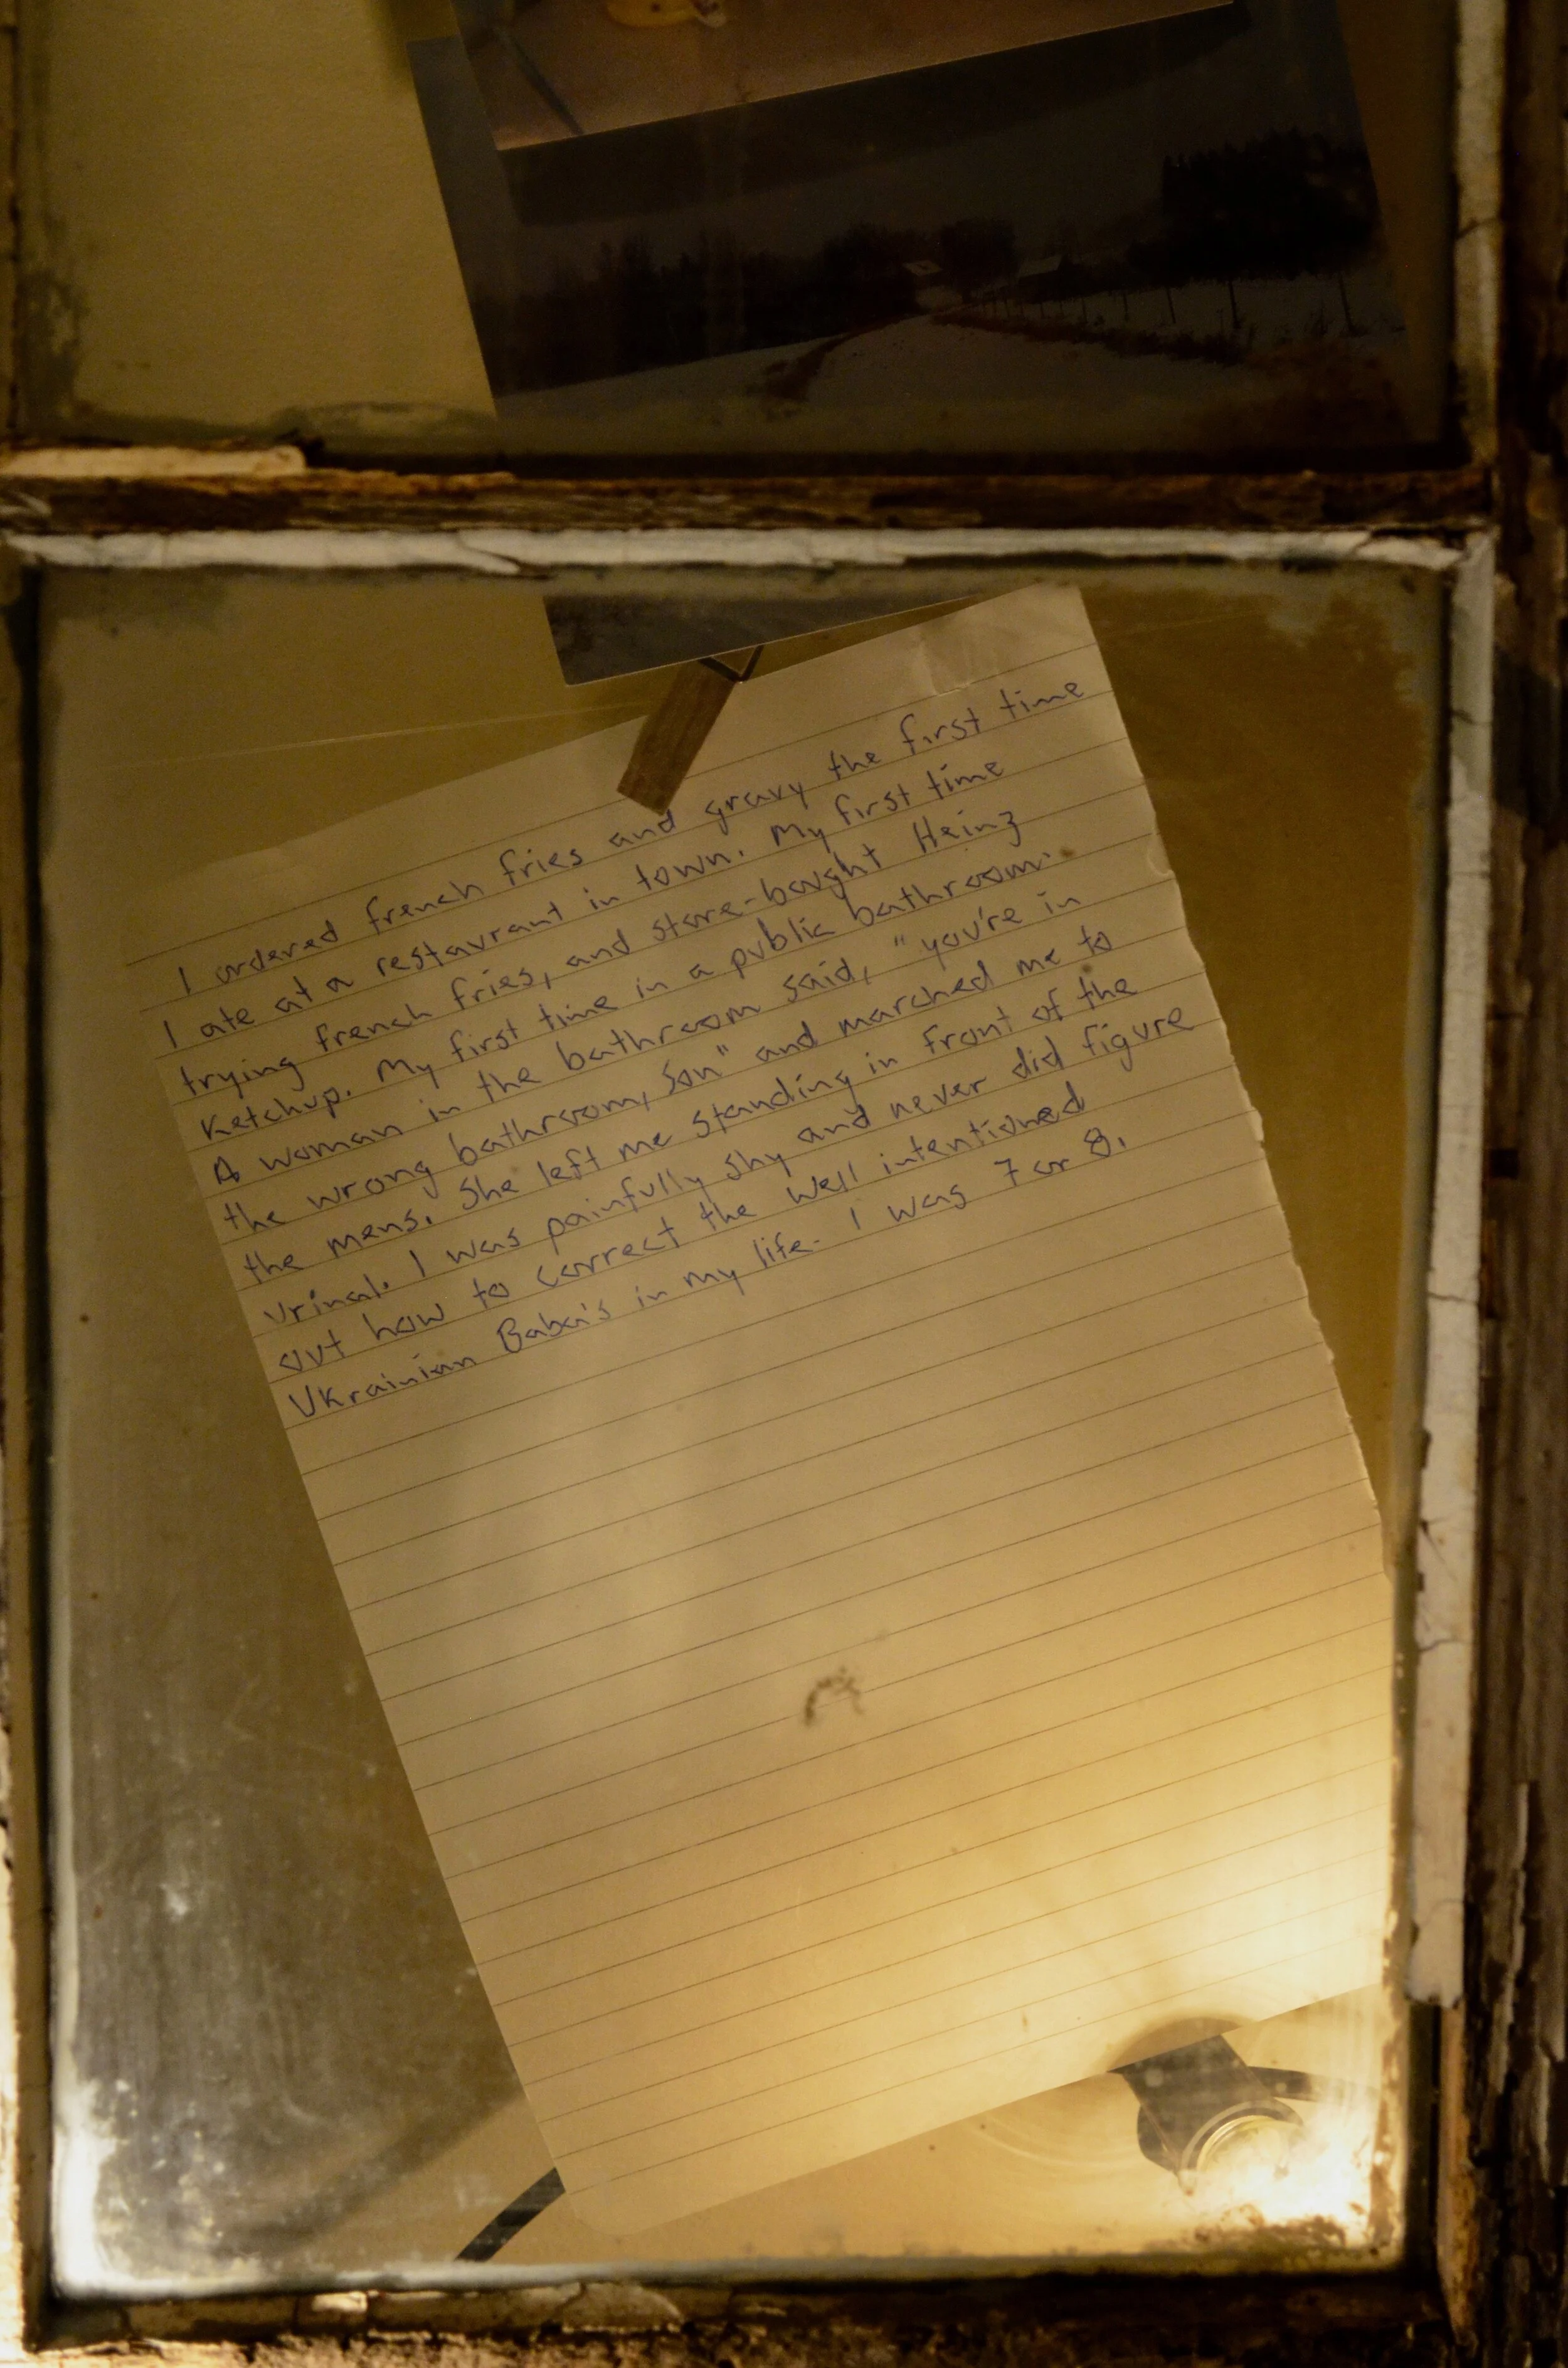 I ordered french fries and gravy the first time
I ate at a restaurant in town. My first time
trying french fries, and store-bought Heinz
Ketchup. My first time in a public bathroom.
A woman in the bathroom said, "you're in
the wrong bathroom, son" and marched me to
the mens. She left me standing in front of the
urinal. I was painfully shy and never did figure
out how to correct the well intentioned
Ukrainian Baba's in my life. I was 7 or 8.